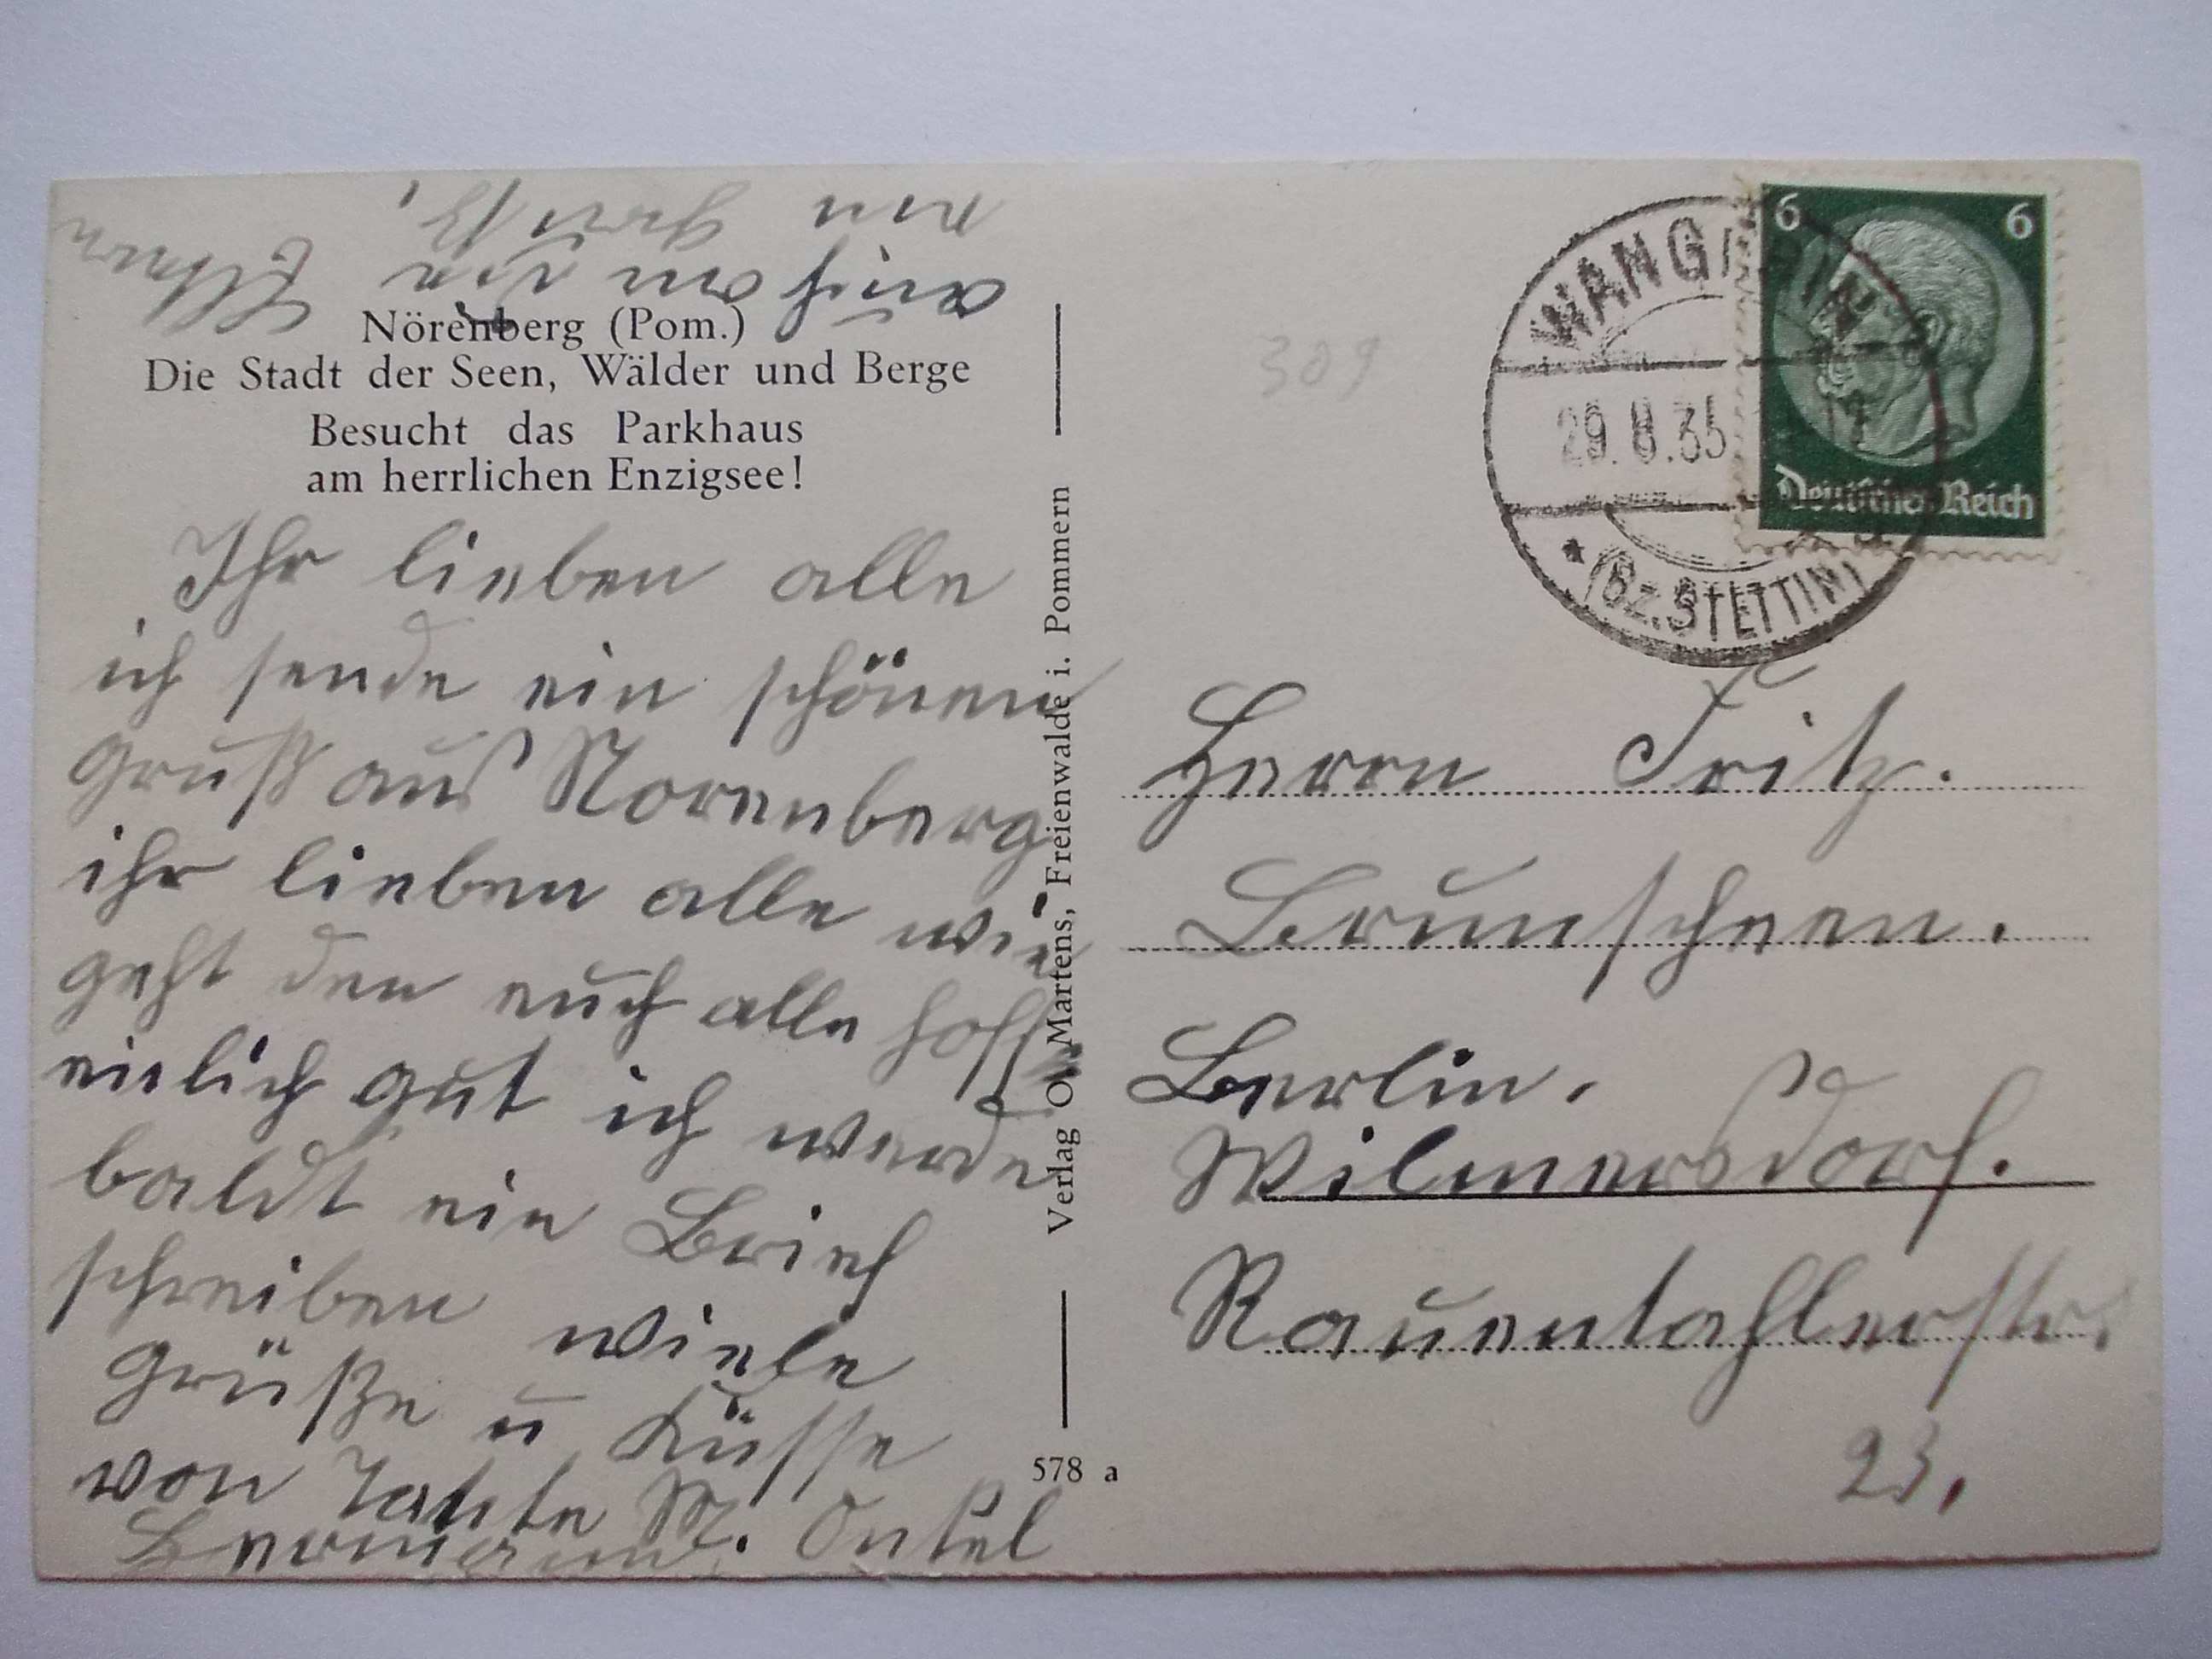 Nörenberg (Pom.)
Die Stadt der Seen, Wälder und Berge
Besucht das Parkhaus
am herrlichen Enzigsee!
Ihr lieben alle
ich sende ein schönen
gruß aus Norenberg
ihr lieben alle wie
geht den euch alle hoff
enlich gut ich werde
baldt ein Brief
schreiben wiele
grüße u Küsse
von Tante M. Onkel
Hermann.
auch von die Eltern
ein gruß,
Verlag O. Martens, Freienwalde i. Pommern
578 a
309
WANGERIN
29.8.35
* (Bz. STETTIN)
6 6
Deutsches Reich
Herrn Fritz.
Brunscheen.
Berlin.
Wilmersdorf.
Rauentahlerstr.
23.